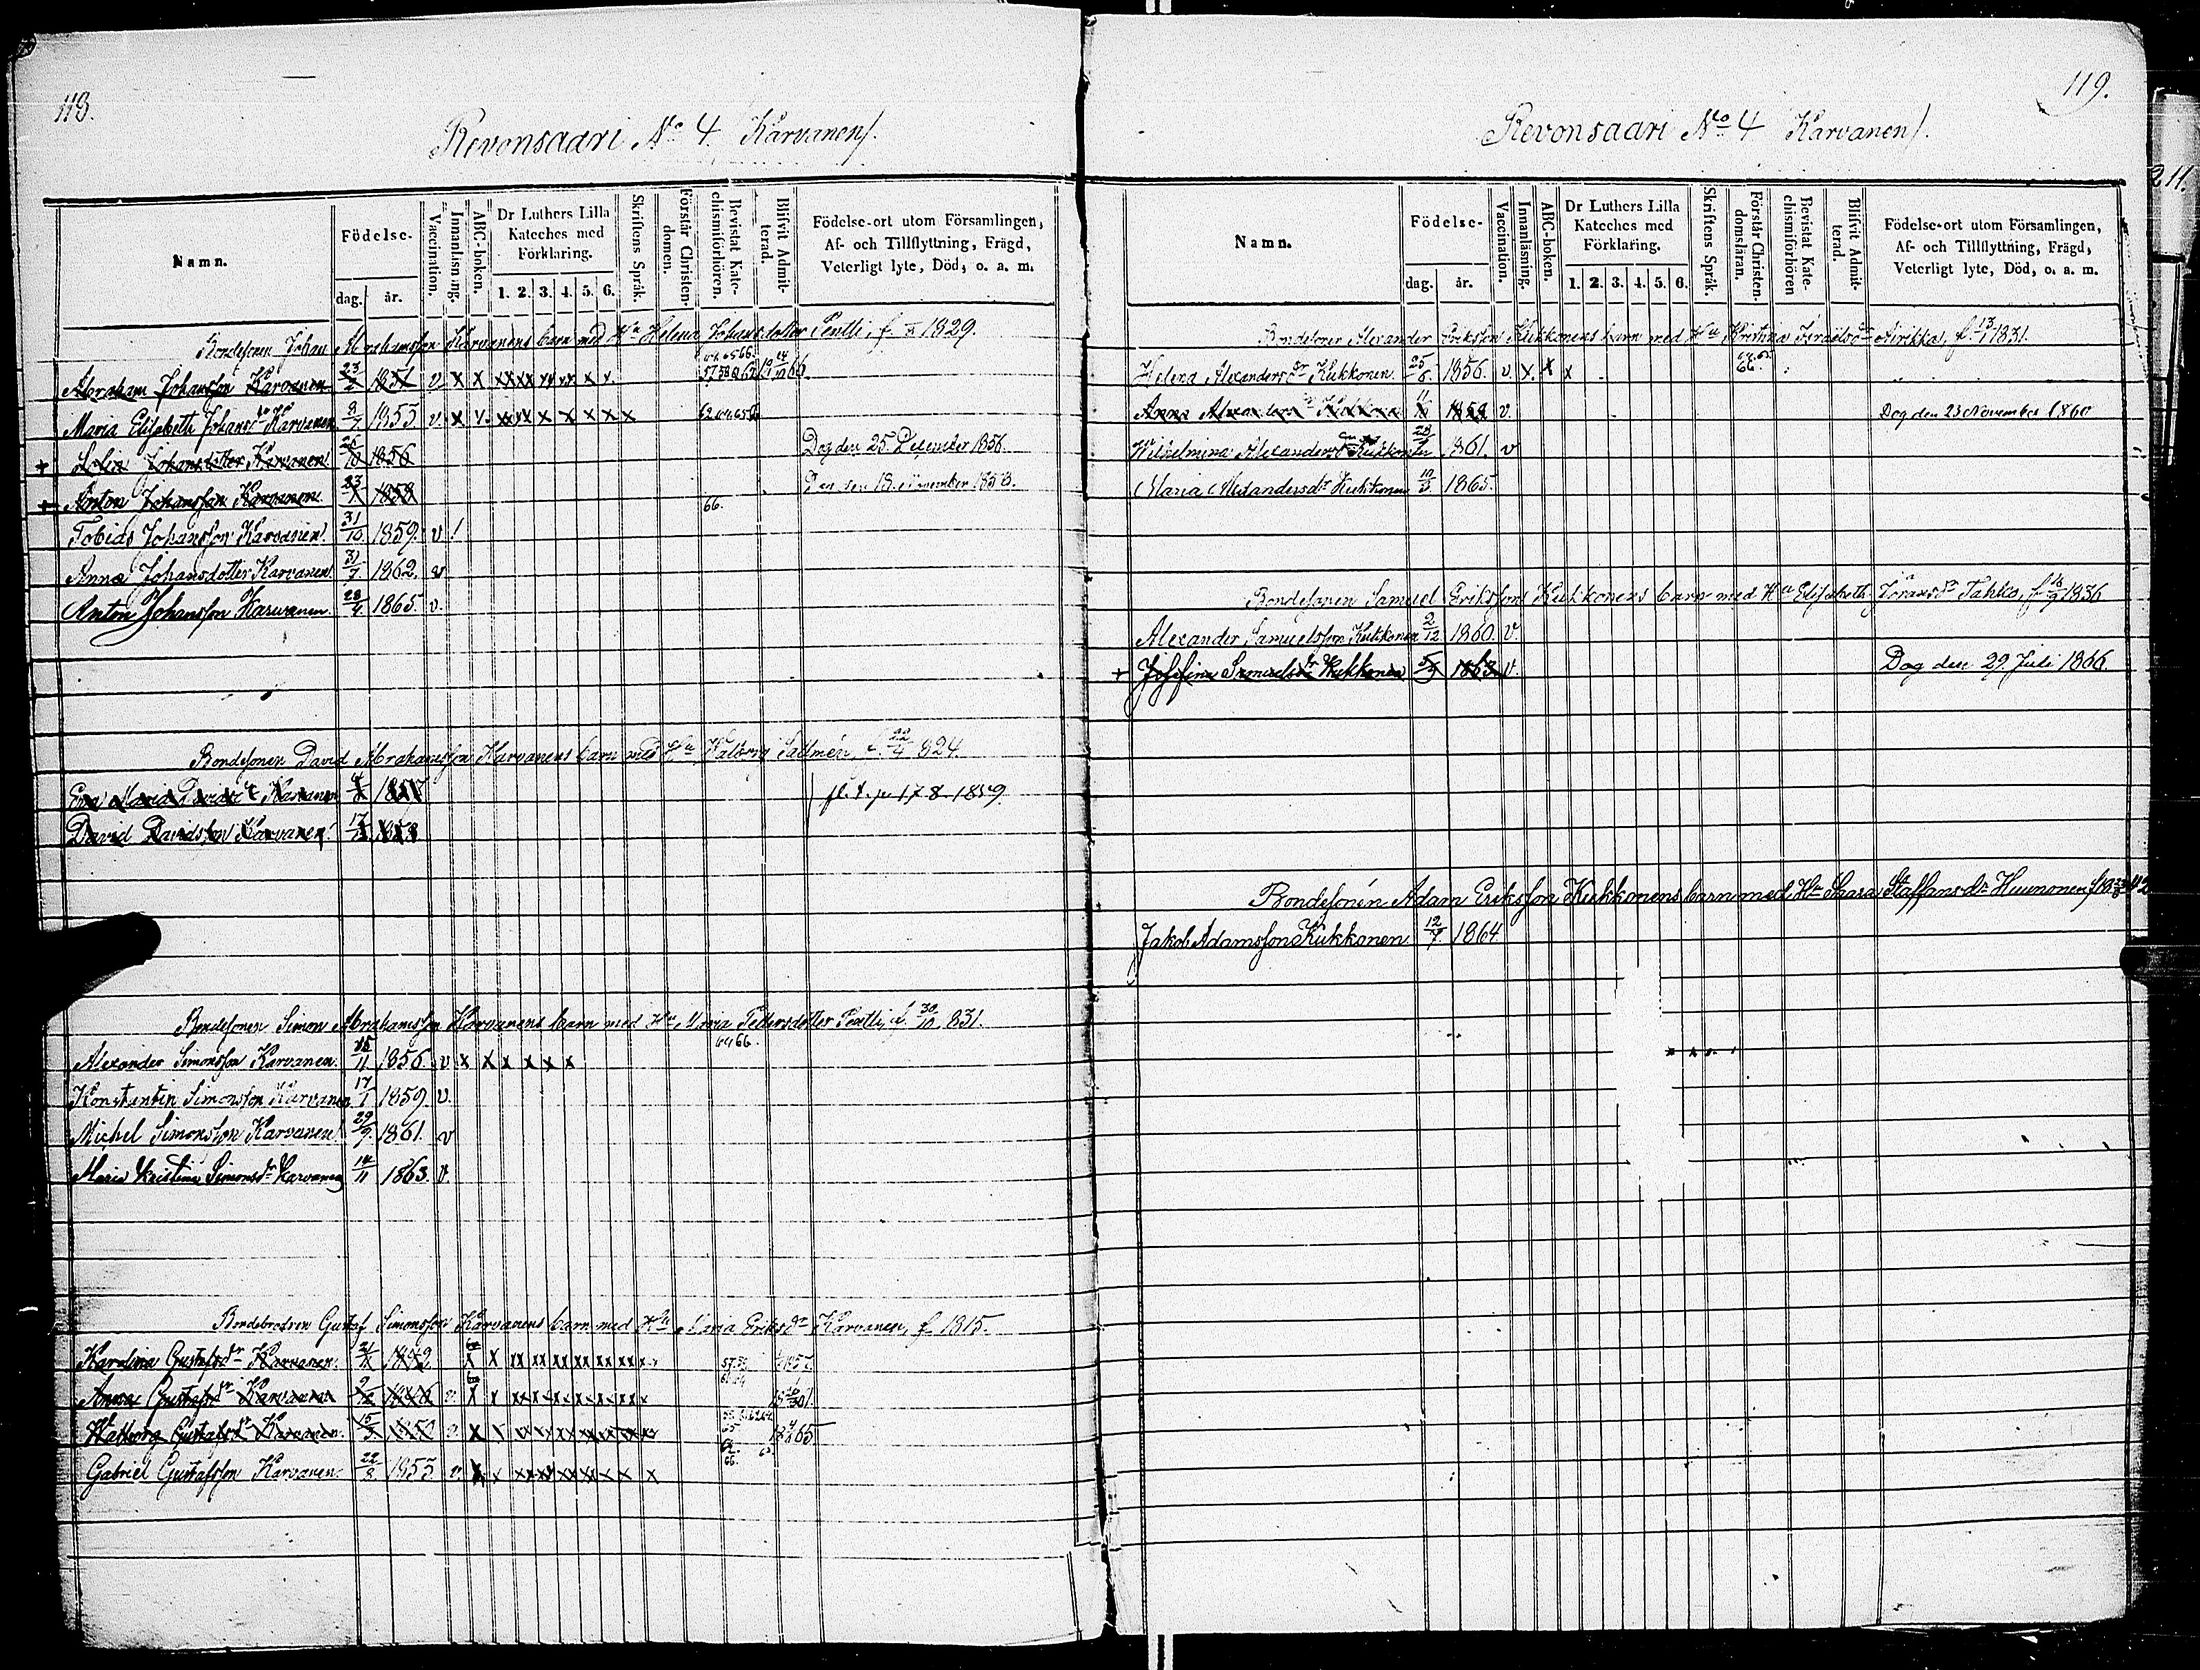 118.
Revonsaari No 4. Karvanen/.
Namn.
Födelse-
dag.
år.
Vaccination.
Innanläsning.
ABC-boken.
Dr Luthers Lilla
Kateches med
Förklaring.
1. 2. 3. 4. 5. 6.
Skriftens Språk.
Förstår Christen-
domen.
Bevistat Kate-
chismiförhören.
Blifvit Admit-
terad.
Födelse-ort utom Församlingen,
Af- och Tillflyttning, Frägd,
Veterligt lyte, Död, o. a. m.
Bondesonen Johan Abrahamsson Karvanens barn med Hu Helena Johansdotter Pentti, f. 1829.
Abraham Johansson Karvanen 1851 v. x x xx xx
Maria Elisabeth Johansdr Karvanen 8/7 1853 v. x
+ Johansdotter Karvanen 26/10 1856 Dog den 25 December 1856.
+ Anton Johansson Karvanen 1858 Den 18 November 1858.
66.
Tobias Johansson Karvanen 31/10 1859. v /
Anna Johansdotter Karvanen 31/7 1862. v
Anton Johansson Karvanen 28/4 1865 v.
Bondesonen David Abrahamsson Karvanens barn med Hu Walborg Sallmén, f. 22/4 824.
Eva Maria Davidsdr Karvanen 1857 17 8 1859.
David Davidsson Karvanen 1858
Bondesonen Simon Abrahamsson Karvanens barn med Hu Maria Pettersdotter Pentti, f. 30/10 831.
64 66.
Alexander Simonsson Karvanen. 1856. v x x x x x x
Konstantin Simonsson Karvanen 17/1 1859. v.
Michel Simonsson Karvanen 29/9 1861. v
Maria Kristina Simonsdr Karvanen 14/11 1863. v.
Bondebrodren Gustaf Simonsson Karvanens barn med Hu Maria Eriksdr Karvanen, f. 1815.
Karolina Gustafsdr Karvanen. x x xx xx xx xx xx xx
Anna Gustafsdr Karvanen v. x x
Walborg Gustafsdr Karvanen. 1850 v. x
Gabriel Gustafsson Karvanen. 22/8 1853 v.
119.
Revonsaari No 4 Karvanen/.
211.
Namn.
Födelse-
dag.
år.
Vaccination.
Innanläsning.
ABC-boken.
Dr Luthers Lilla
Kateches med
Förklaring.
1. 2. 3. 4. 5. 6.
Skriftens Språk.
Förstår Christen-
domsläran.
Bevistat Kate-
chismiförhören
Blifvit Admit-
terad.
Födelse-ort utom Församlingen,
Af- och Tillflyttning, Frägd,
Veterligt lyte, Död, o. a. m.
Bondesonen Alexander Eriksson Kukkonens barn med Hu Kristina Israelsdr Airikka, f. 1831.
Helena Alexandersdr Kukkonen. 25/8 1856. v. x. x x 66.
Anna Alexandersdr Kukkonen 1859 v. Dog den 23 November 1860
Wilhelmina Alexandersdr Kukkonen 1861. v
Maria Alexandersdr Kukkonen 1865.
Bondesonen Samuel Eriksson Kukkonens barn med Hu Elisabeth Göransdr Tahko, f. 1836
Alexander Samuelsson Kukkonen 2/12 1860. v.
+ Josefina Samuelsdr Kukkonen 1863 v. Dog den 29 Juli 1866.
Bondesonen Adam Eriksson Kukkonens barn med Hu Saara Staffansdr Huunonen,
Jakob Adamsson Kukkonen. 12/7. 1864